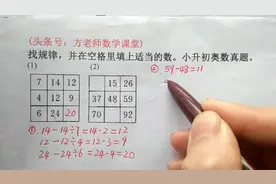 (头条号：方老师数学课堂)
找规律，并在空格里填上适当的数。小升初奥数真题。
(1) (2)
7 14 12
4 12 9
6 24 20
15 26
37 48 59
70 92
① 14-14÷7=14-2=12
12-12÷4=12-3=9
24-24÷6=24-4=20
② 59-48=11